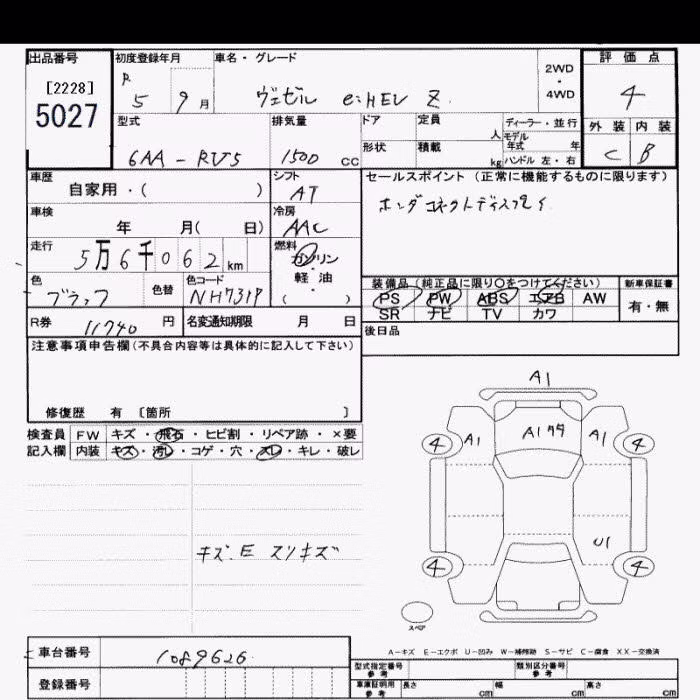 出品番号 初度登録年月 車名・グレード 評価点
[2228] R 2WD
5027 5 9月 ヴェゼル e:HEV Z ・ 4
4WD
型式 排気量 ドア 定員 人 ディーラー・並行 外装 内装
モデル年式 年
6AA-RV5 1500cc 形状 積載 kg ハンドル 左・右 C B
車歴 シフト セールスポイント (正常に機能するものに限ります)
自家用・( ) AT ホンダコネクトディスプレイ
車検 冷房
年 月( 日) AAC
走行 燃料
5万6千062km ガソリン
軽油
( )
色 色替 色コード 装備品(純正品に限り○をつけてください) 新車保証書
ブラック NH731P PS PW ABS エアB AW 有・無
SR ナビ TV カワ
R券 11740円 名変通知期限 月 日 後日品
注意事項申告欄(不具合内容等は具体的に記入して下さい)
修復歴 有 [箇所 ]
検査員 FW キズ・飛石・ヒビ割・リペア跡・×要
記入欄 内装 キズ・汚レ・コゲ・穴・スレ・キレ・破レ
キズ.E スリキズ
A1
4 A1 A1 A1 4
U1
4 4
スペア
A−キズ E−エクボ U−凹み W−補修跡 S−サビ C−腐食 XX−交換済
車台番号 1089626
登録番号
型式指定番号 参考 類別区分番号 参考
車庫証明用 参考 長さ cm 幅 cm 高さ cm